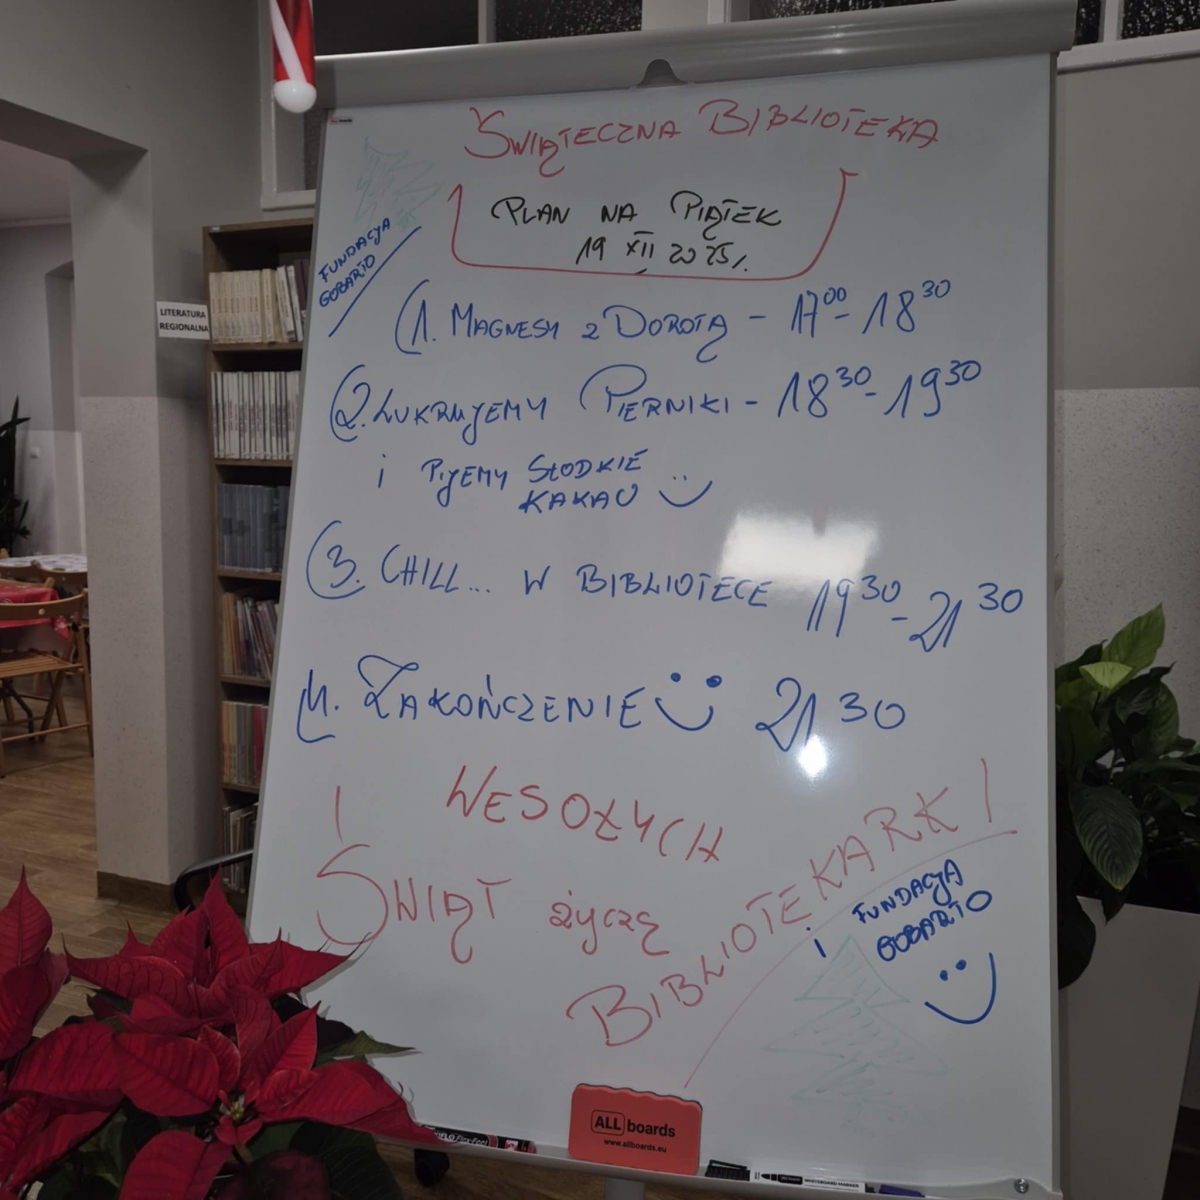 ALLboards
ŚWIĄTECZNA BIBLIOTEKA
PLAN NA PIĄTEK
19 XII 2025r.
FUNDACJA
GOBARTO
LITERATURA
REGIONALNA
1. MAGNESY z DOROTĄ - 17⁰⁰- 18³⁰
2. LUKRUJEMY PIERNIKI - 18³⁰-19³⁰
i PIJEMY SŁODKIE
KAKAO
3. CHILL... W BIBLIOTECE 19³⁰-21³⁰
4. ZAKOŃCZENIE 21³⁰
WESOŁYCH
ŚWIĄT życzę
BIBLIOTEKARKI
i FUNDACJA
GOBARTO
ALLboards
www.allboards.eu